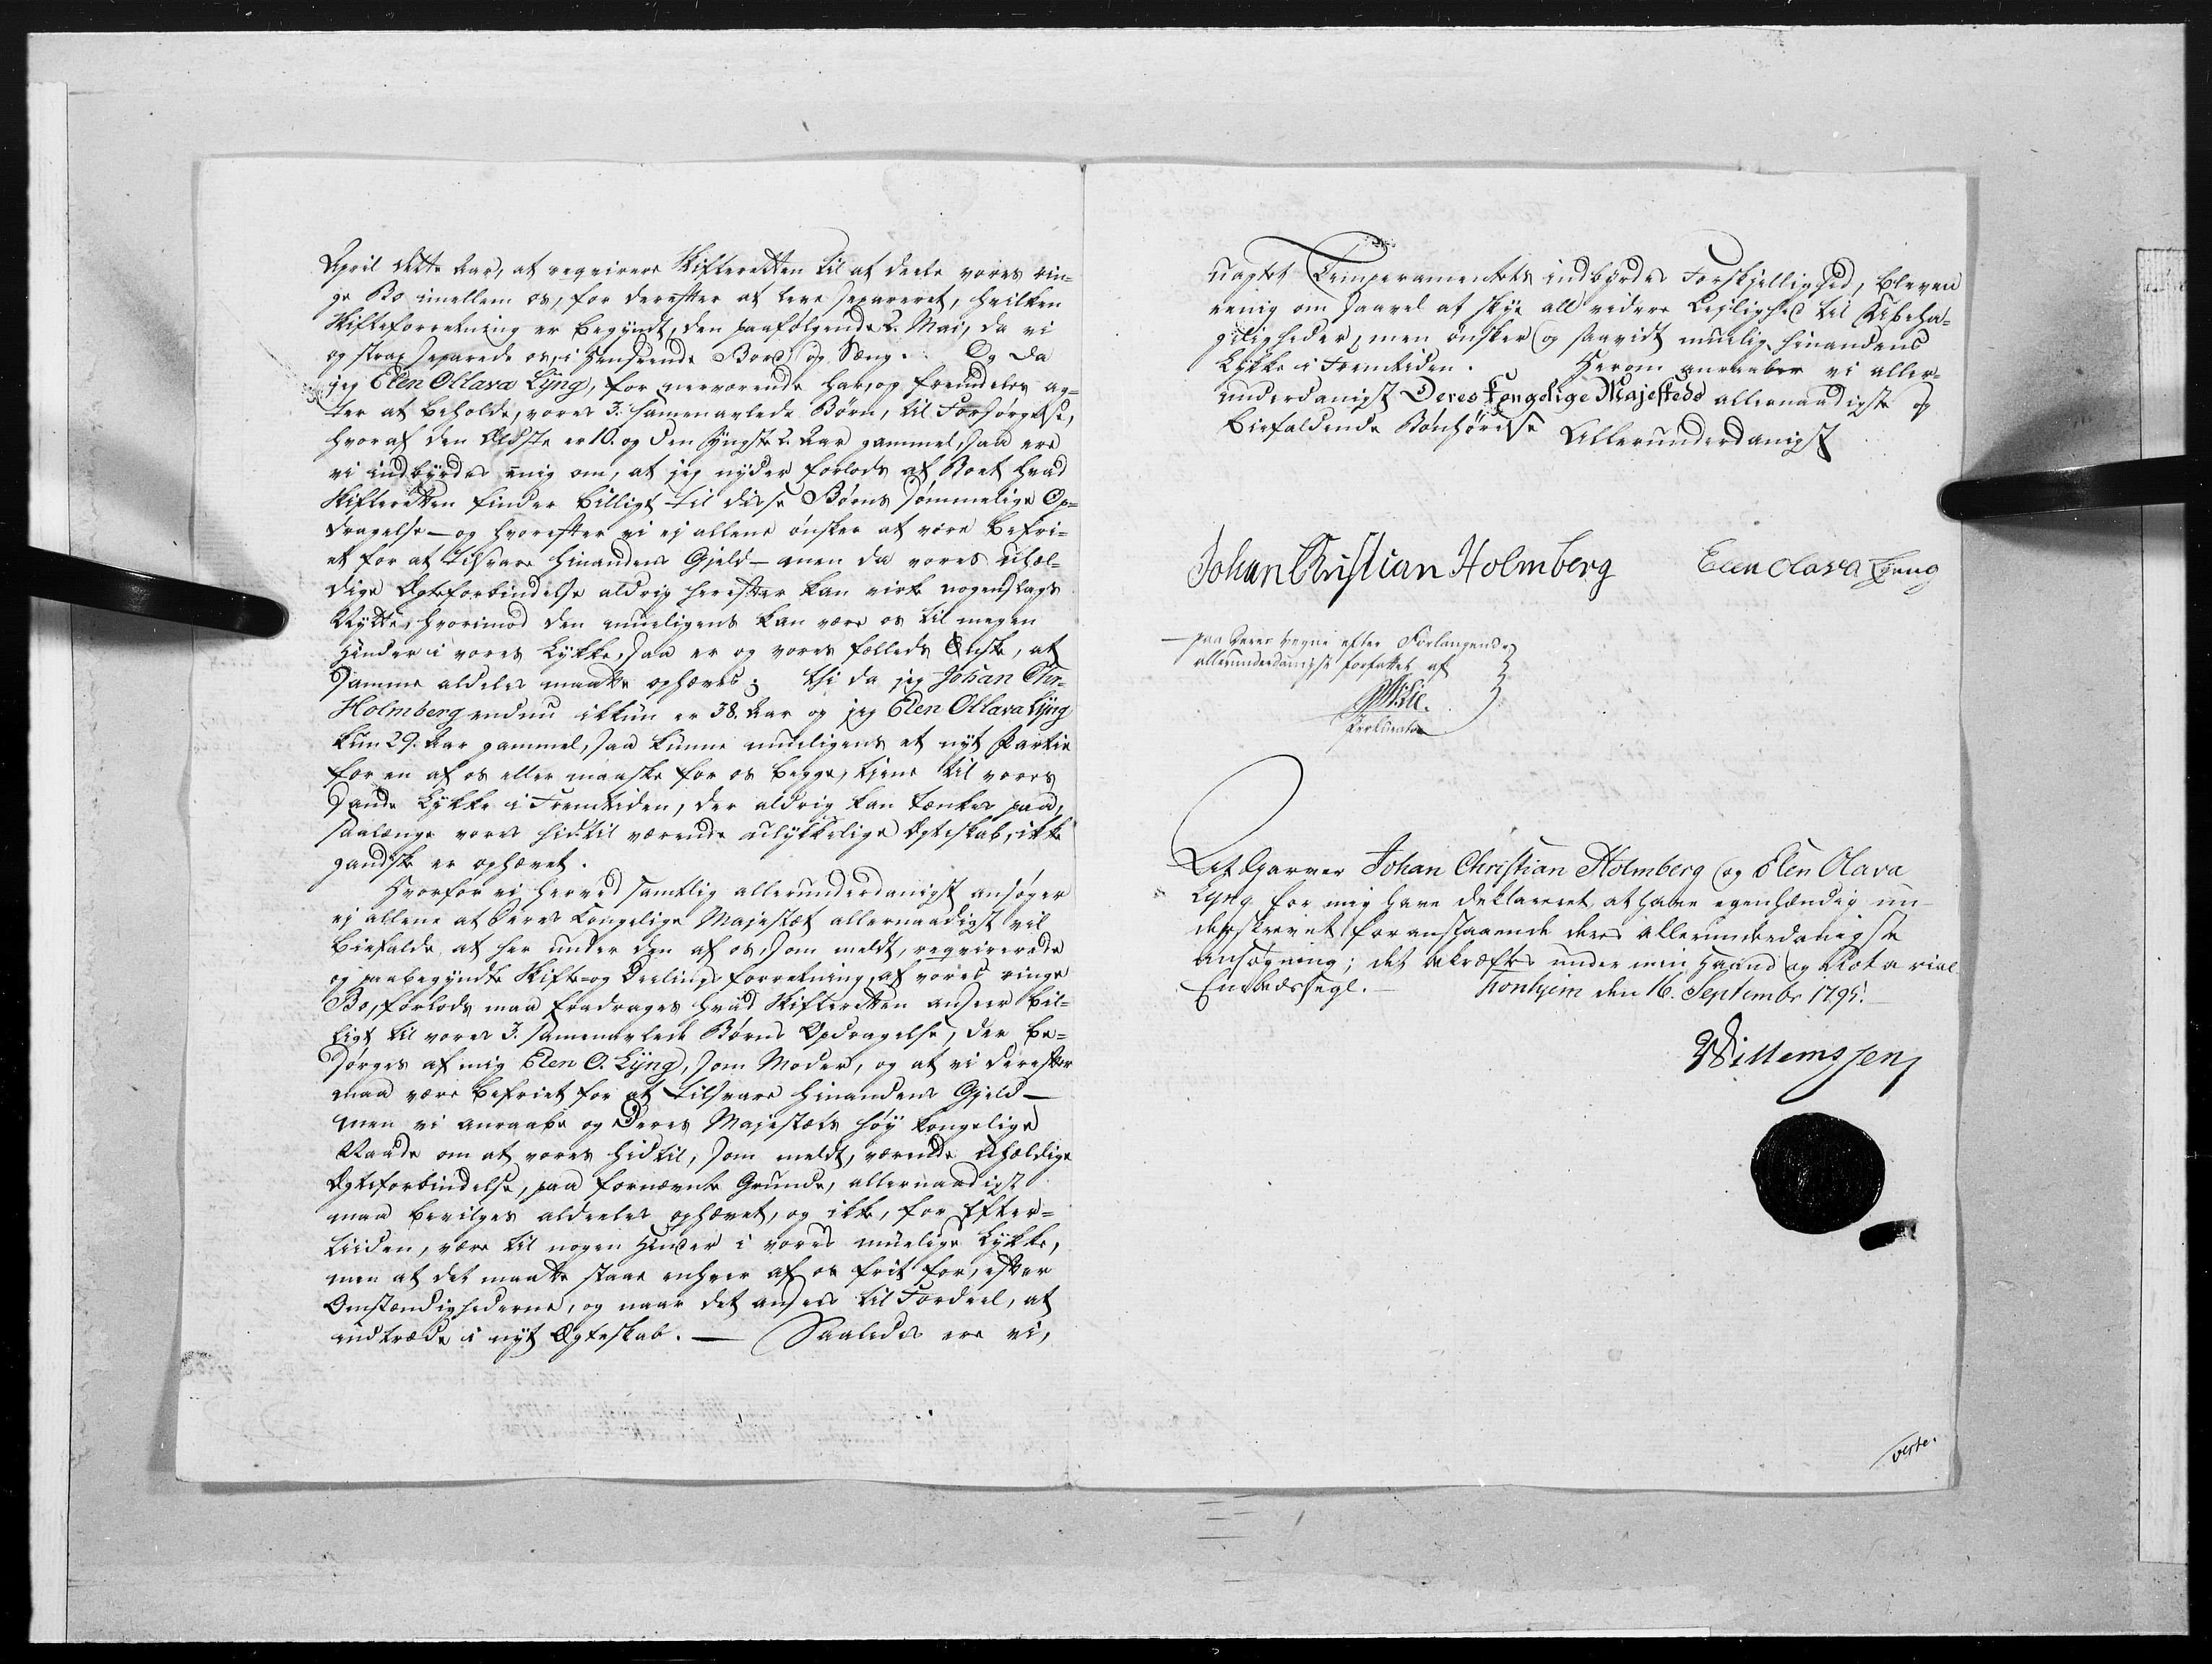 April dette Aar, at reqvirere Skifteretten til at deele vores rin¬
ge Bo imellem os, for derefter at leve separeret, hvilken
Skifteforretning er begyndt, den paafølgende 2. Mai, da vi
og strax separede os, i Henseende Bord og Sæng. Og da
jeg Elen Ollava Lyng, for nærværende har, og fremdeles ag¬
ter at beholde, vores 3. samenavlede Børn, til Forsørgelse,
hvoraf den Ældste er 10. og den yngste 2. Aar gammel, saa ere
vi indbyrdes enig om, at jeg nyder forlods af Boet hvad
Skifteretten finder billigt til disse Børns sømmelige Op¬
dragelse — og hvorefter vi ej allene ønsker at være befri¬
et for at tilsvare hinandens Gjeld — men da vores uhel¬
dige Ægteforbindelse aldrig herefter kan virke nogenslags
Nytte, hvorimod den mueligens kan være os til megen
Hinder i vores Lykke, saa er og vores fælleds Ønske, at
samme aldeles maatte ophæves; thi da jeg Johan Chr.
Holmberg endnu ikkun er 38. Aar og jeg Elen Ollava Lyng
kun 29. Aar gammel, saa kunne mueligens et nyt Partie
for en af os eller maaske for os begge, tiene til vores
sande Lykke i Fremtiden, der aldrig kan tænkes paa,
saalænge vores hidtil værende ulykkelige Ægteskab, ikke
gandske er ophævet.
Hvorfor vi herved samtlig allerunderdanigst ansøger
ej allene at Deres Kongelige Majestæt allernaadigst vil
biefalde, at her under den af os, som meldt, reqvirerede
og paabegyndte Skifte- og Deelings forretning, af vores ringe
Bo, forlods maa fradrages hvad Skifteretten anseer bil¬
ligt til vores 3. samenavlede Børns Opdragelse, der be¬
sørges af mig Elen O. Lyng, som Moder, og at vi derefter
maa være befriet for at tilsvare hinandens Gjeld —
men vi anraabe og Deres Majestæts høy kongelige
Naade om at vores hidtil, som meldt, værende uheldige
Ægteforbindelse, paa fornævnte Grunde, allernaadigst
maa bevilges aldeeles ophævet, og ikke, for Efter¬
tiiden, være til nogen Hinder i vores muelige Lykke,
men at det maatte staae enhver af os frit for, efter
Omstændighederne, og naar det ansees til Fordeel, at
indtræde i nyt Ægteskab. — Saaledes ere vi,
uagtet Temperamentets indbyrdes Forskjellighed, bleven
eenig om saavel at skye all videre Lejlighed til Ubeha¬
geligheder, men ønsker og saavidt muelig hinandens
Lykke i Fremtiden. Herom anraaber vi aller¬
underdanigst Deres Kongelige Majesteds allernaadigste og
biefaldende Bønhørelse Allerunderdanigst
Johan Christian Holmberg Elen Olava Lyng
— paa deres vegne efter Forlangende
allerunderdanigst forfattet af
Prokurator
At Garver Johan Christian Holmberg og Elen Olava
Lyng for mig have deklareret, at have egenhændig un¬
derskrevet foranstaaende deres allerunderdanigste
ansøgning; det bekræftes under min Haand og Notarial
Embedssegl. — Tronhjem den 16. Septembr 1795.
Willemssen
verte.